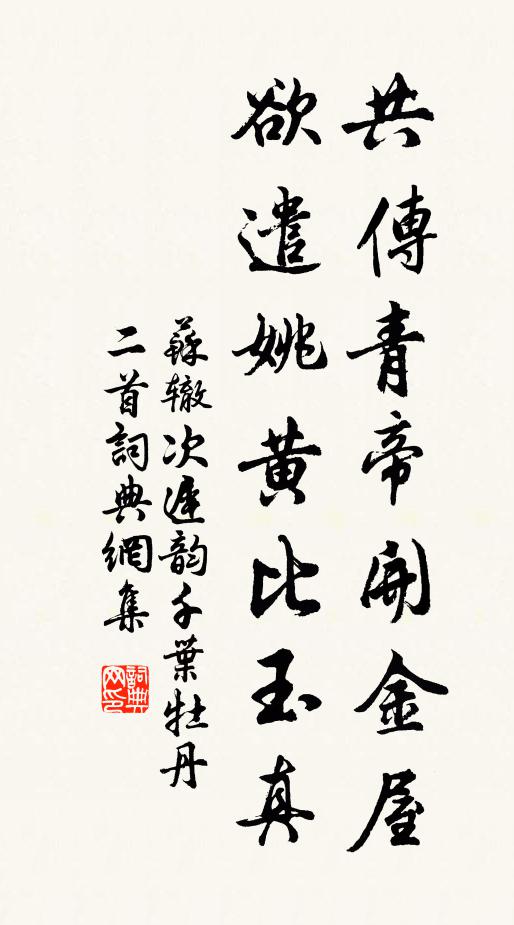 共傳青帝開金屋
欲遣姚黃比玉真
蘇辙次遲韵千葉牡丹
二首詞典網集
詞典網印